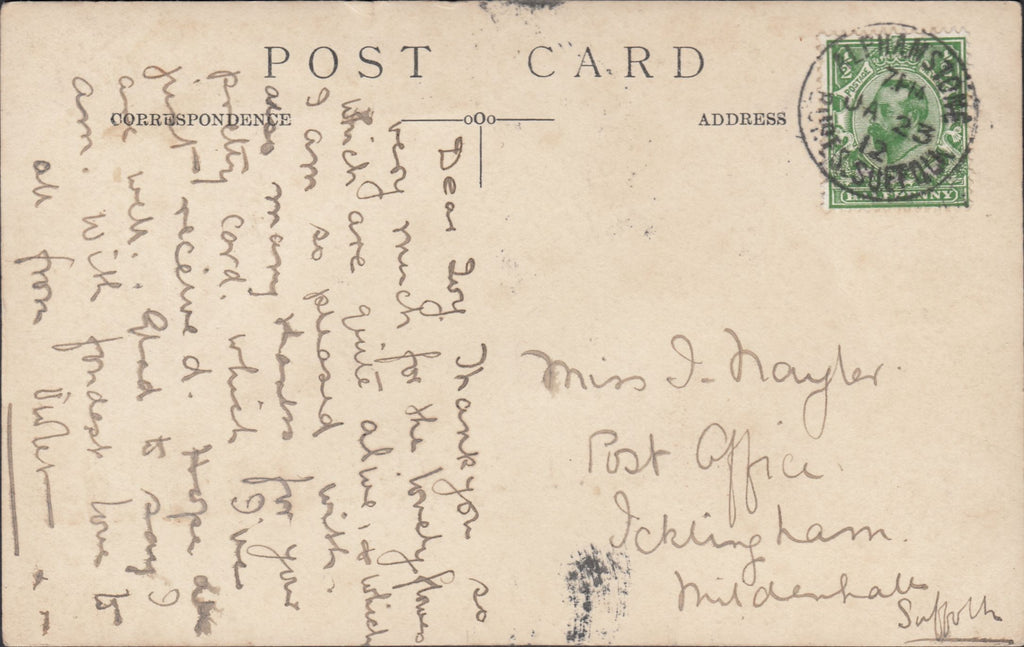 POST CARD
CORRESPONDENCE
ADDRESS
Dear Ivy. Thank you so
very much for the lovely flowers
which are quite alive, & which
I am so pleased with.
also many thanks for your
pretty card. which I've
just received. Hope
are well. Glad to say I
am. With fondest love to
all from Violet
Miss I. Nayler.
Post Office
Icklingham.
Mildenhall
Suffolk
ALPHAMSTONE
BURES. SUFFOLK
JA 23
12
1/2
POSTAGE
HALFPENNY